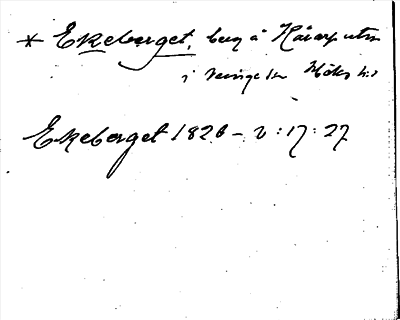 * Ekeberget, berg å Kåarp utm
i Veinge sn Höks hd
Ekeberget 1826 – 2:17:27